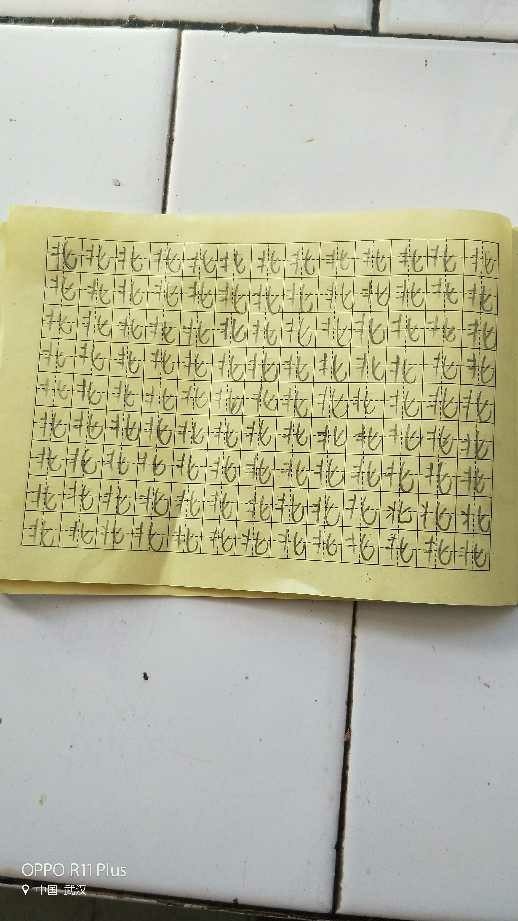 北北北北北北北北北北北北北
北北北北北北北北北北北北北
北北北北北北北北北北北北北
北北北北北北北北北北北北北
北北北北北北北北北北北北北
北北北北北北北北北北北北北
北北北北北北北北北北北北北
北北北北北北北北北北北北北
北北北北北北北北北北北北北
OPPO R11 Plus
中国·武汉